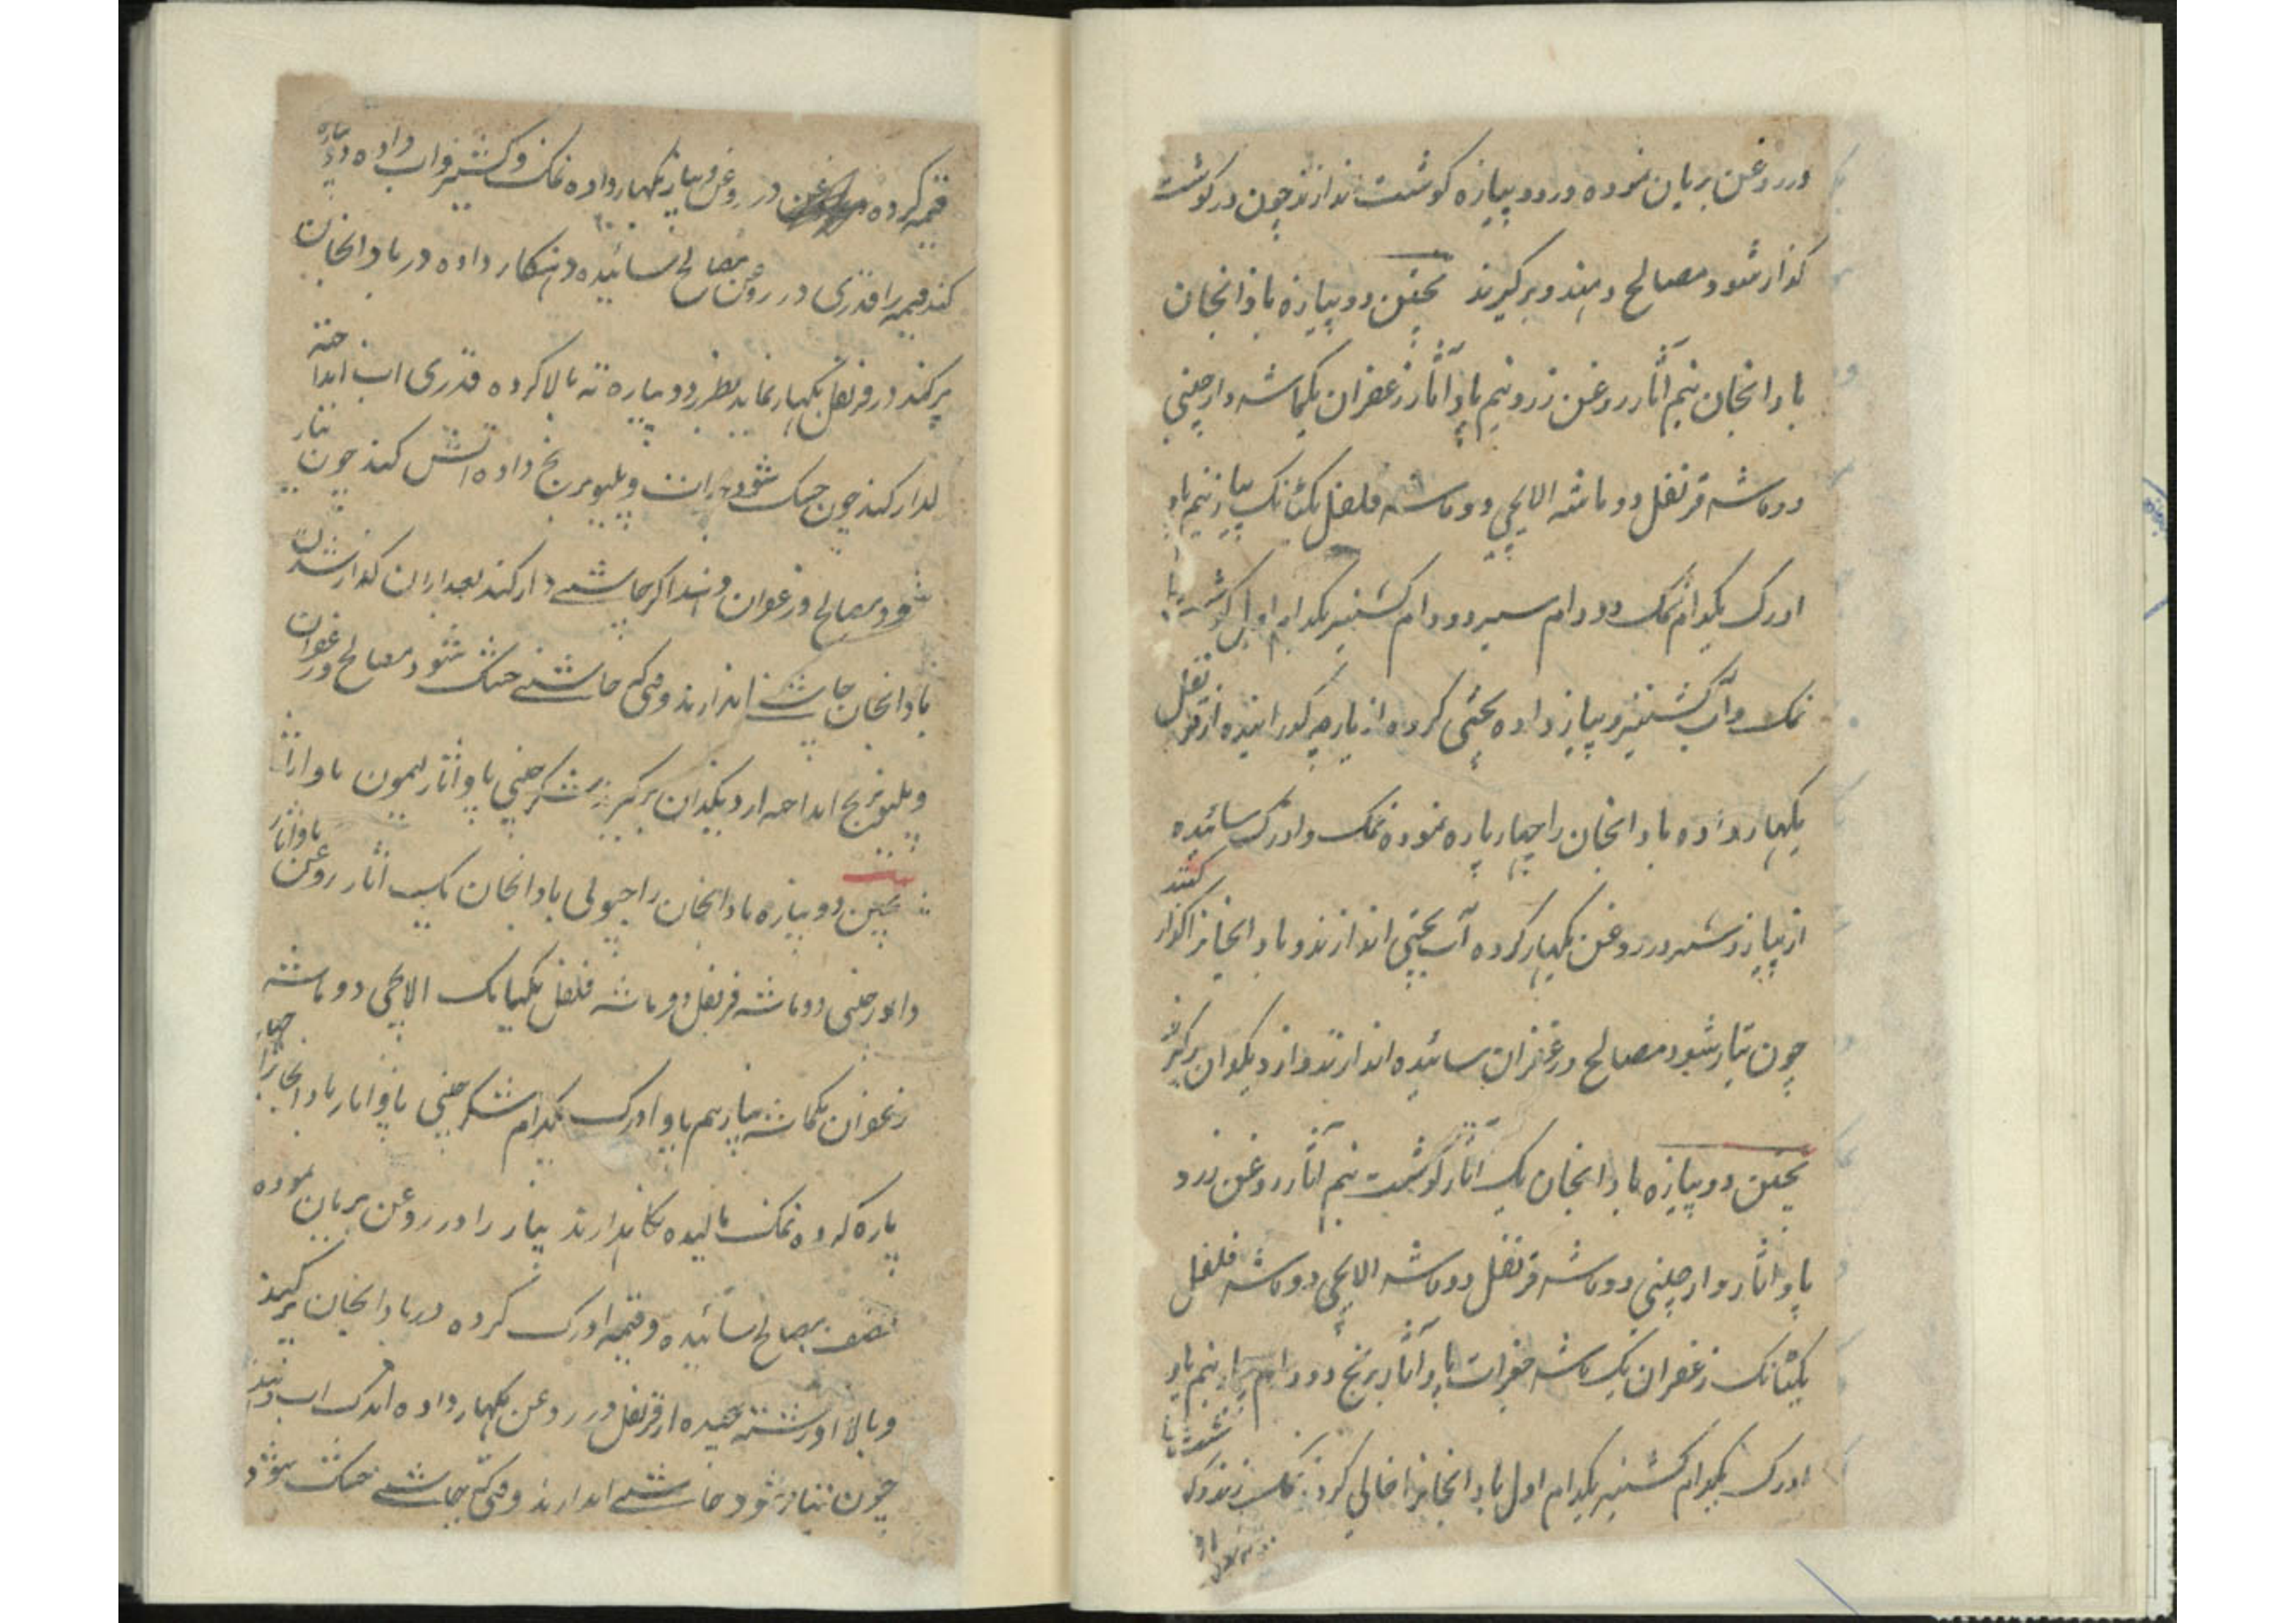 در روغن بریان نموده در دو پیازه کوشت اندازند چون در کوشت
کذار شود مصالح دهند و برکیرند پختن دو پیازه بادانجان
بادانجان نیم آثار روغن زرد نیم پاو آثار زعفران یکماشه دارچینی
دو ماشه قرنفل دو ماشه الایچی دو ماشه فلفل یکتانک پیاز نیم پاو
ادرک یکدام نمک دو دام سیر دو دام کشنیز یکدام اول کوشت را با
نمک و آب کشنیز و پیاز داده یخنی کرده از پارچه کذرانیده از قرنفل
بکهار داده بادانجان را چهار پاره نموده نمک و ادرک سائیده
از پیاز رشته در روغن بکهار کرده آب یخنی اندازند و بادانجانرا کذار کنند
چون تیار شود مصالح و زعفران سائیده اندازند و از دیکدان برکیرند
پختن دو پیازه بادانجان یک آثار کوشت نیم آثار روغن زرد
پاو آثار دارچینی دو ماشه قرنفل دو ماشه الایچی دو ماشه فلفل
یکتانک زعفران یک ماشه جغرات پاو آثار برنج دو دام پیاز نیم پاو
ادرک یکدام کشنیز یکدام اول بادانجانرا خالی کرده نمک زنند کوشت را
قیمه کرده در روغن و پیاز بکهار داده نمک و کشنیز و اب داده دو پیازه
کند قیمه را قدری در روغن مصالح سائیده دهنکار داده در بادانجان
پر کند در قرنفل بکهار نماید بطرز دو پیازه ته بالا کرده قدری اب انداخته
کدار کند چون خشک شود جغرات و پلیو برنج داده اتش کند چون تیار
شود مصالح و زعفران دهند اکر چاشنی دار کند بعد ازان کداز شدن
بادانجان چاشنی اندازند وقتی که چاشنی خشک شود مصالح و زعفران
و پلیو برنج انداخته از دیکدان برکیرند شکر چینی پاو آثار لیمون پاو اثار
پختن دو پیازه بادانجان راجپولی بادانجان یک اثار روغن پاو اثار
دارچینی دو ماشه قرنفل دو ماشه فلفل یکتانک الایچی دو ماشه
زعفران یکماشه پیاز نیم پاو ادرک یکدام شکر چینی پاو اثار بادانجانرا چهار
پاره کرده نمک مالیده نکاهدارند پیاز را در روغن بریان نموده
نصف مصالح سائیده و قیمه ادرک کرده در بادانجان پر کنند
و بالا او رشته پیچیده از قرنفل در روغن بکهار داده اندک اب دهند
چون تیار شود چاشنی اندازند وقتی که چاشنی خشک شود